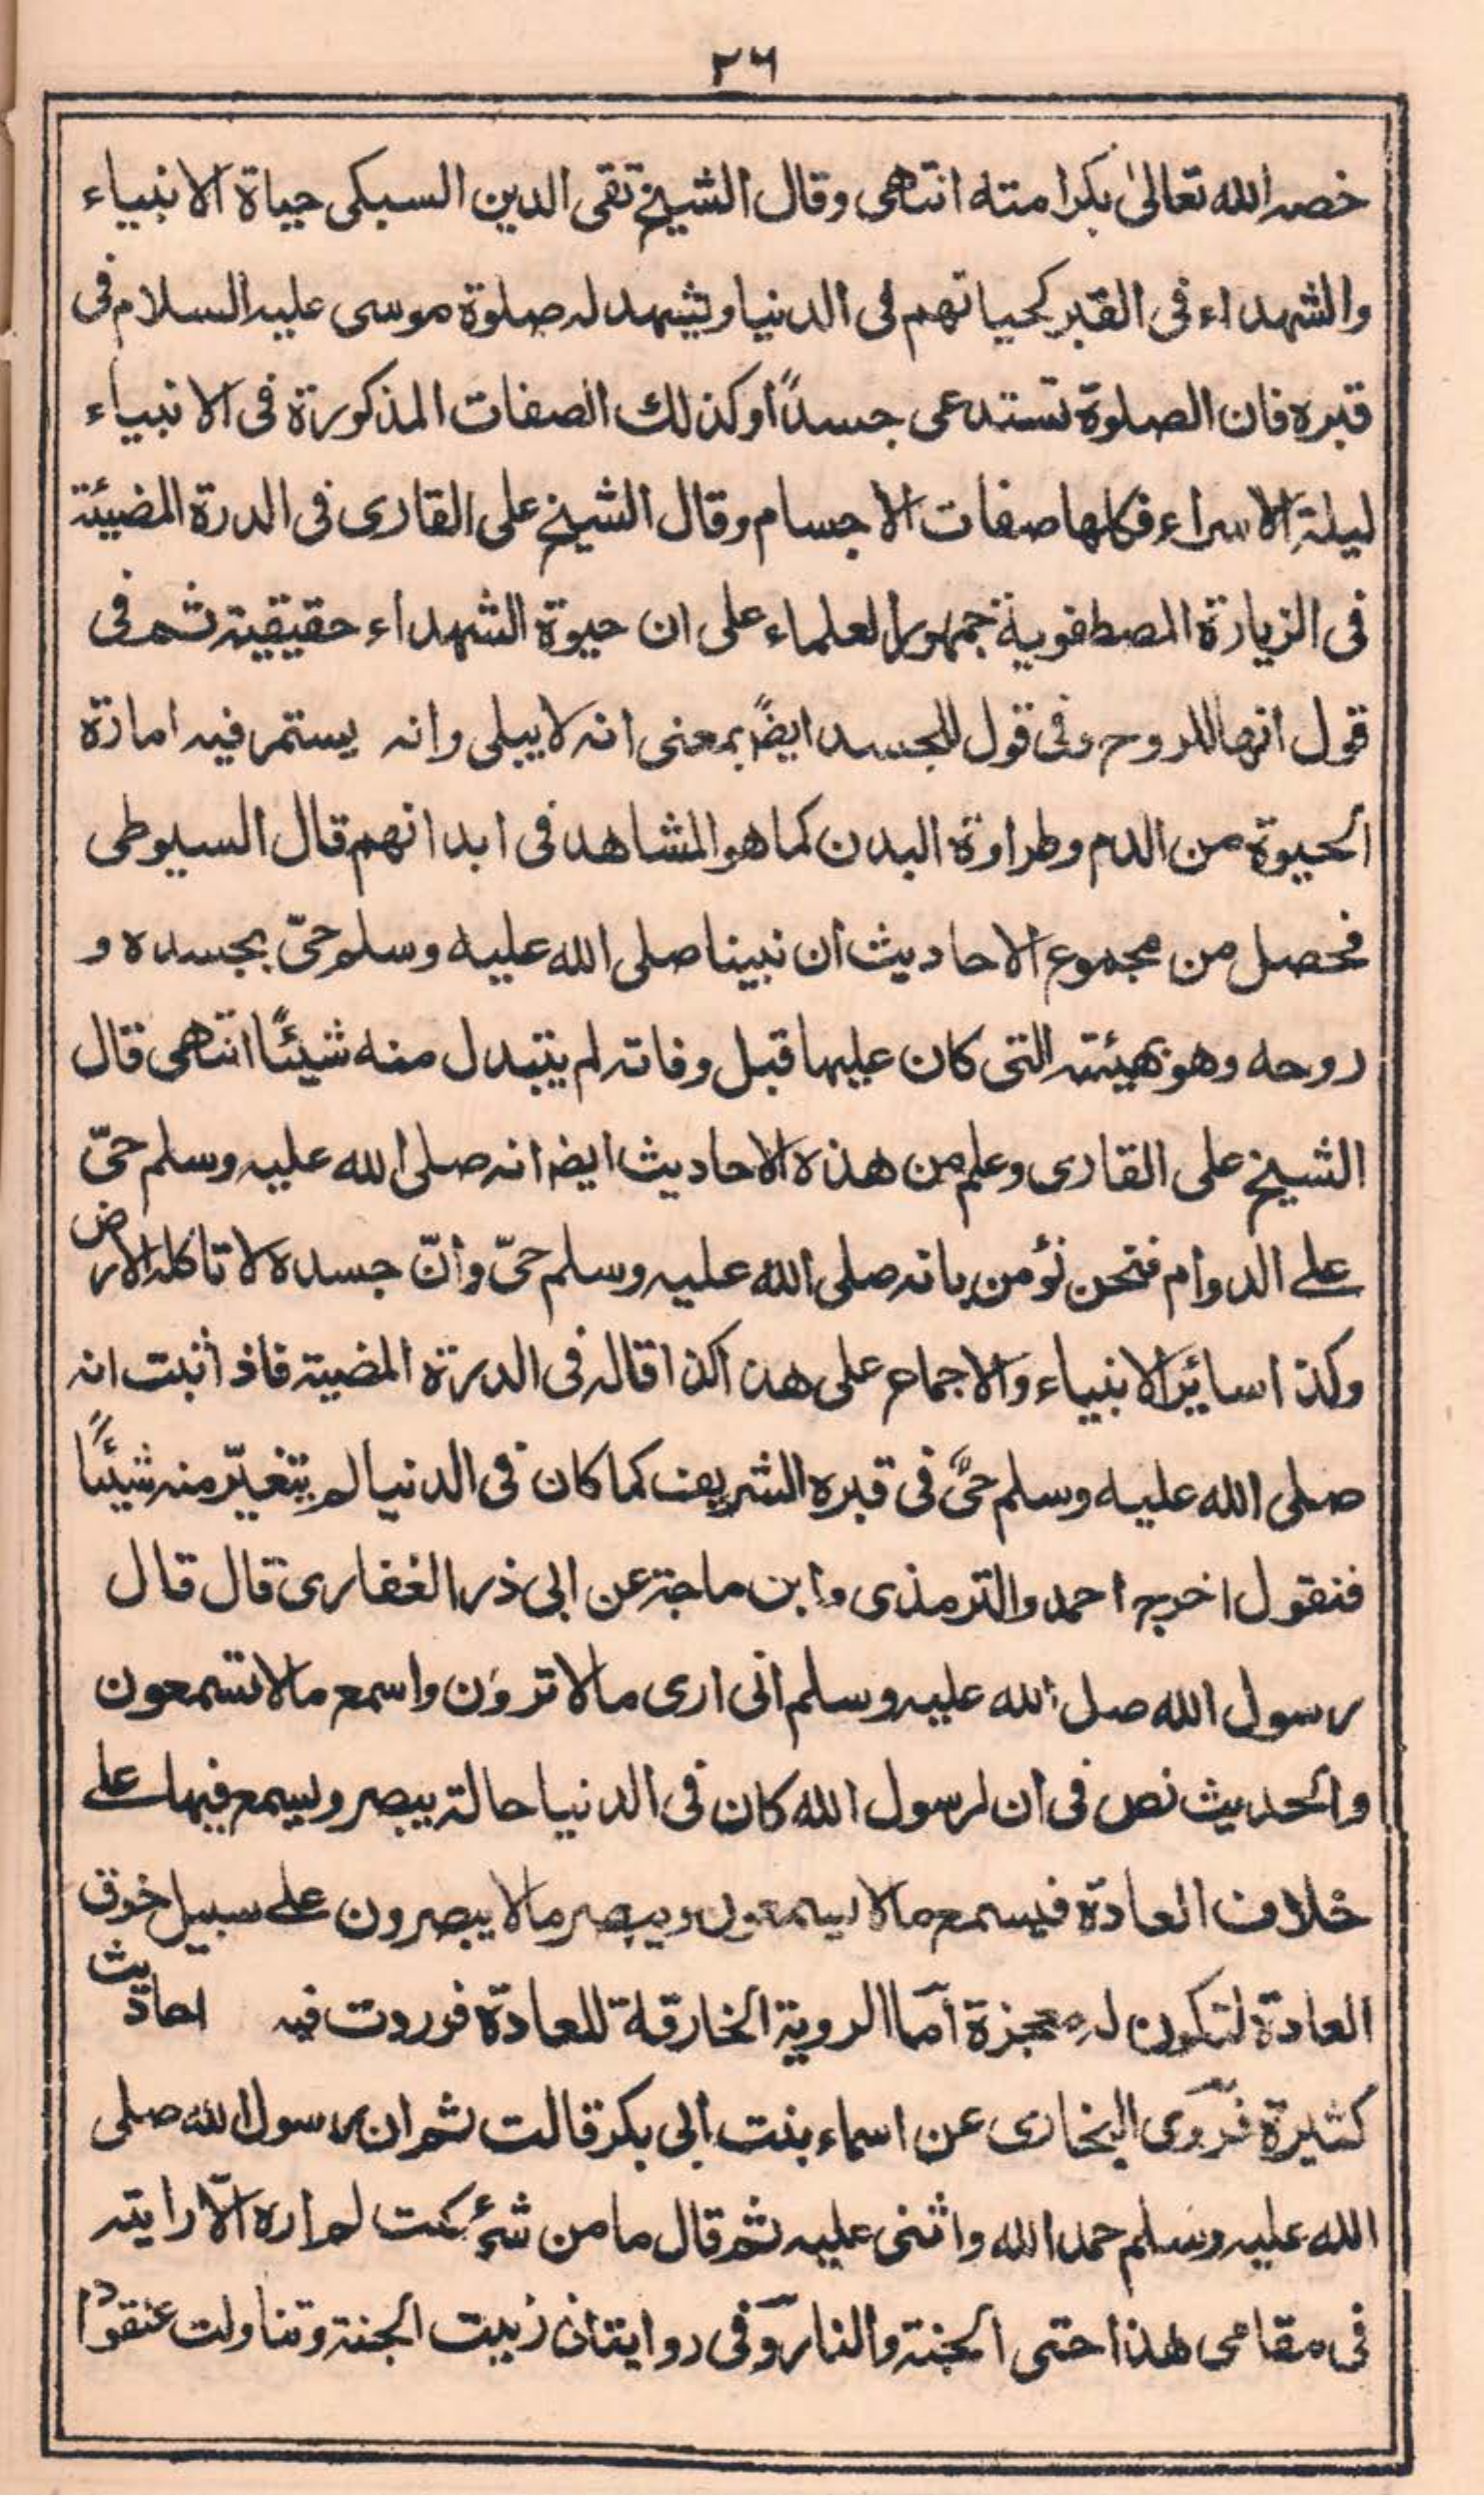 ٢٦
خصه الله تعالىٰ بكرامته انتهى وقال الشيخ تقى الدين السبكى حياة الانبياء
والشهداء فى القبر كحياتهم فى الدنيا ويشهد له صلوة موسى عليه السلام فى
قبره فان الصلوة تستدعى جسدًا وكذلك الصفات المذكورة فى الانبياء
ليلة الاسراء فكلها صفات الاجسام وقال الشيخ على القارى فى الدرة المضيئة
فى الزيارة المصطفوية جمهور العلماء على ان حيوة الشهداء حقيقية ثم فى
قول انها للروح وفى قول للجسد ايضًا بمعنى انه لا يبلى وانه يستمر فيه امارة
الحيوة من الدم وطراوة البدن كما هو المشاهد فى ابدانهم قال السيوطى
فحصل من مجموع الاحاديث ان نبينا صلى الله عليه وسلم حىّ بجسده و
روحه وهو بهيئته التى كان عليها قبل وفاته لم يتبدل منه شيئًا انتهى قال
الشيخ على القارى وعلم من هذه الاحاديث ايضا انه صلى الله عليه وسلم حىّ
على الدوام فنحن نؤمن بانه صلى الله عليه وسلم حىّ وانّ جسده لا تاكله الارض
وكذا سائر الانبياء والاجماع على هذا كذا قاله فى الدرة المضية فاذا ثبت انه
صلى الله عليه وسلم حىٌّ فى قبره الشريف كما كان فى الدنيا لم يتغيّر منه شيئًا
فنقول اخرج احمد والترمذى وابن ماجة عن ابى ذر الغفارى قال قال
رسول الله صلى الله عليه وسلم انى ارى مالا ترون واسمع مالا تسمعون
والحديث نص فى ان لرسول الله كان فى الدنيا حالة يبصر ويسمع فيها على
خلاف العادة فيسمع مالا يسمعون ويبصر مالا يبصرون على سبيل خرق
العادة لتكون له معجزة امّا الروية الخارقة للعادة فوردت فيه احاديث
كثيرة فروى البخارى عن اسماء بنت ابى بكر قالت ثم ان رسول الله صلى
الله عليه وسلم حمد الله واثنى عليه ثم قال ما من شئ كنت لم اره الّا رايته
فى مقامى هذا حتى الجنة والنار وفى رواية ان زبيت الجنة وتناولت عنقودًا